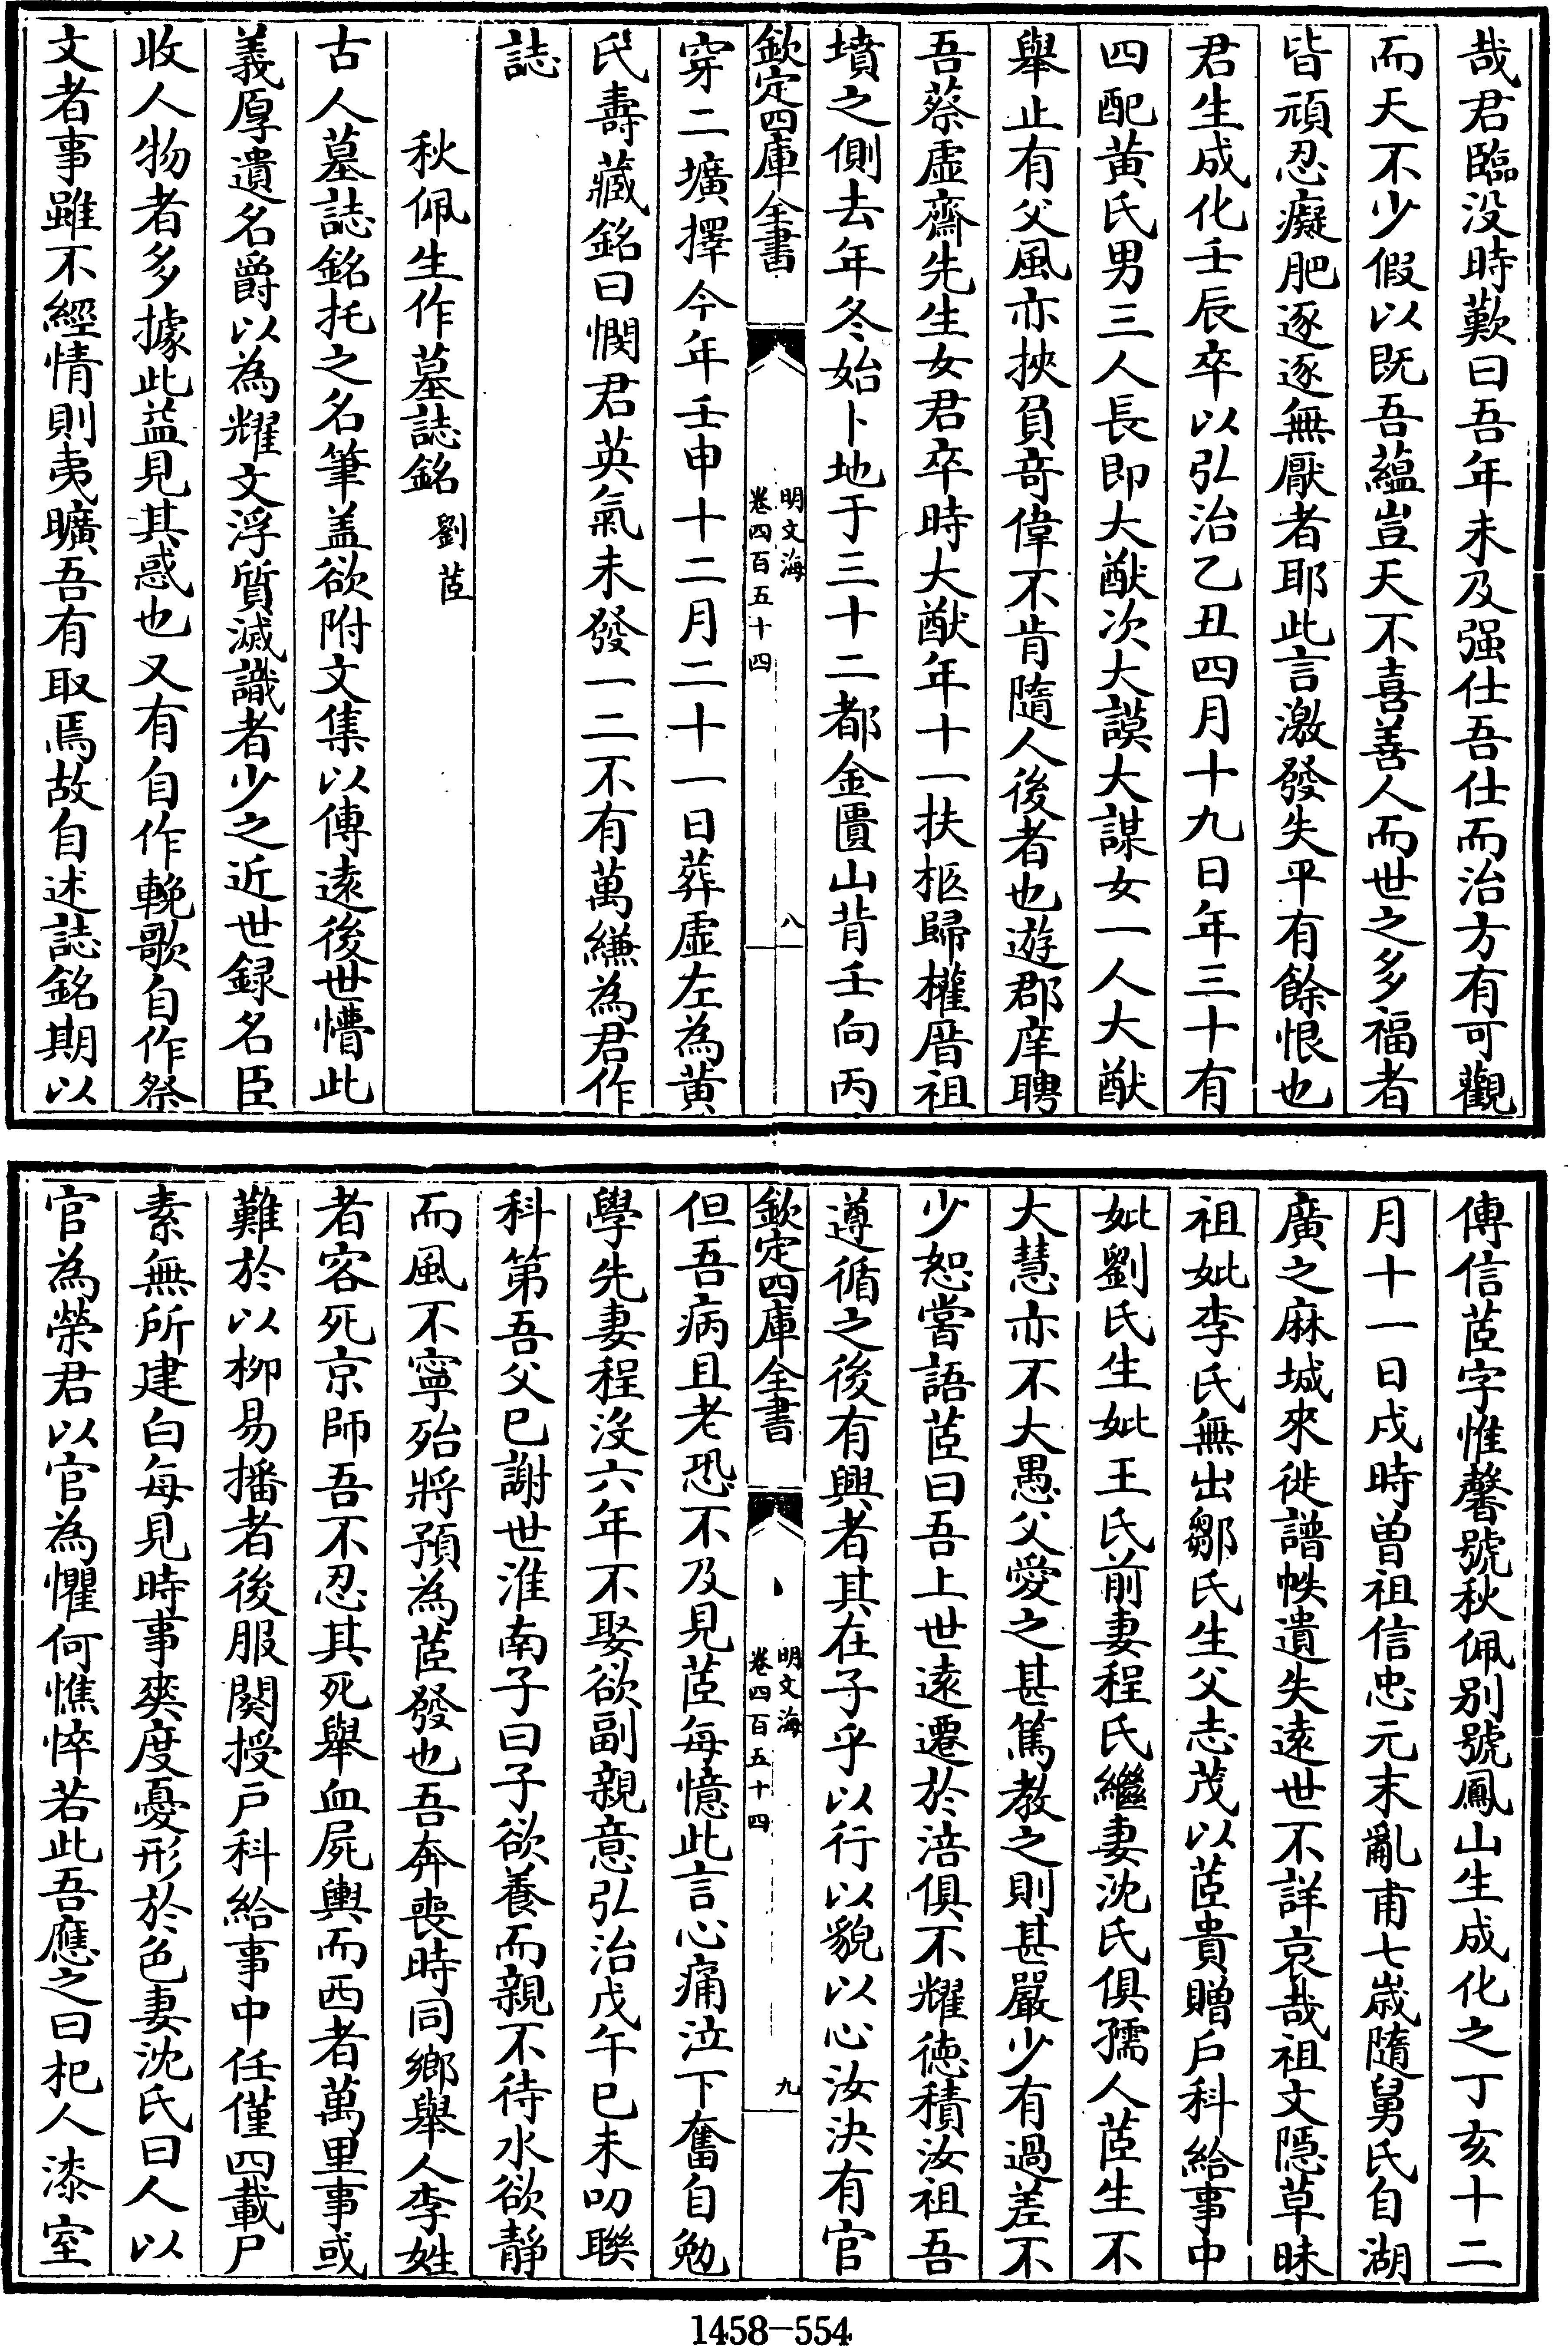 哉君臨没時歎曰吾年未及强仕吾仕而治方有可觀
而天不少假以既吾蘊豈天不喜善人而世之多福者
皆頑忍癡肥逐逐無厭者耶此言激發失平有餘恨也
君生成化壬辰卒以弘治乙丑四月十九日年三十有
四配黄氏男三人長即大猷次大謨大謀女一人大猷
舉止有父風亦挾負竒偉不肯隨人後者也遊郡庠聘
吾蔡虚齋先生女君卒時大猷年十一扶柩歸權厝祖
墳之側去年冬始卜地于三十二都金匱山背壬向丙
欽定四庫全書
明文海
卷四百五十四
八
穿二壙擇今年壬申十二月二十一日葬虚左為黄
氏壽藏銘曰憫君英氣未發一二不有萬縑為君作
誌
秋佩生作墓誌銘 劉茝
古人墓誌銘托之名筆盖欲附文集以傳遠後世懵此
義厚遺名爵以為耀文浮質滅識者少之近世録名臣
收人物者多據此益見其惑也又有自作輓歌自作祭
文者事雖不經情則夷曠吾有取焉故自述誌銘期以
傳信茝字惟馨號秋佩别號鳳山生成化之丁亥十二
月十一日戌時曽祖信忠元末亂甫七嵗隨舅氏自湖
廣之麻城來徙譜帙遺失遠世不詳哀哉祖文隠草昧
祖妣李氏無出鄒氏生父志茂以茝貴贈戶科給事中
妣劉氏生妣王氏前妻程氏繼妻沈氏俱孺人茝生不
大慧亦不大愚父愛之甚篤教之則甚嚴少有過差不
少恕嘗語茝曰吾上世遠遷於涪俱不耀徳積汝祖吾
遵循之後有興者其在子乎以行以貌以心汝決有官
欽定四庫全書
明文海
卷四百五十四
九
但吾病且老恐不及見茝每憶此言心痛泣下奮自勉
學先妻程没六年不娶欲副親意弘治戊午己未叨聯
科第吾父已謝世淮南子曰子欲養而親不待水欲靜
而風不寧殆將預為茝發也吾奔喪時同鄉舉人李姓
者客死京師吾不忍其死舉血屍輿而西者萬里事或
難於以柳易播者後服闋授戶科給事中任僅四載戶
素無所建白每見時事爽度憂形於色妻沈氏曰人以
官為榮君以官為懼何憔悴若此吾應之曰杞人漆室
1458-554